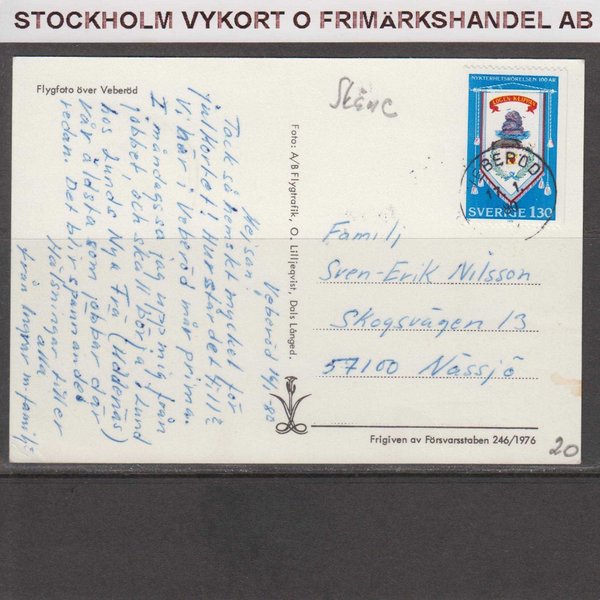 STOCKHOLM VYKORT O FRIMÄRKSHANDEL AB
Flygfoto över Veberöd
Skåne
NYKTERHETSRÖRELSEN 100 ÅR
SVERIGE 130
VEBERÖD
Veberöd 14/1-80
Hejsan!
Tack så hemskt mycket för
julkortet! Hur står det till?
Vi här i Veberöd mår prima.
I måndags sa jag upp mig från
jobbet och skall börja i Lund
hos Lunds Nya Trä (Uddenäs)
Vår äldsta som jobbar där
redan. Det blir spännande!
Hälsningar till er
alla
från Ingvar m familj
Foto: A/B Flygtrafik, O. Lilljeqvist, Dals Långed.
Familj
Sven-Erik Nilsson
Skogsvägen 13
57100 Nässjö
Frigiven av Försvarsstaben 246/1976
20